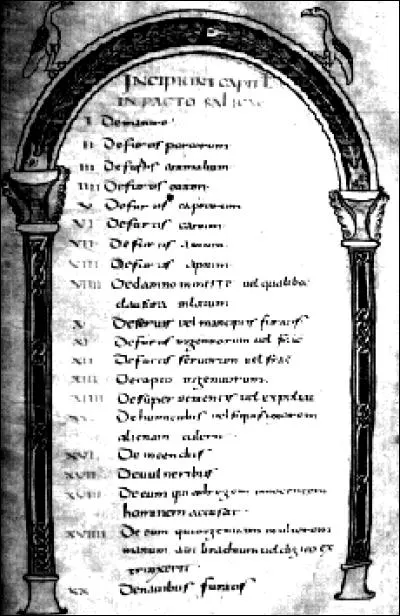 INCIPIUNT CAPITL
IN PACTO SALICAE
I De mannire
II De furtis porcorum
III De furtis animalium
IIII De furtis ouium
V De furtis caprarum
VI De furtis canum
VII De furtis auium
VIII De furtis apium
VIIII De damno uel qualibet
clausura inlatum
X De seruis uel mancipiis furatis
XI De furtis ingenuorum uel frac
XII De furtis seruorum uel frac
XIII De rapto ingenuorum
XIIII De superuenientis uel expoliat
XV De homicidiis uel si quis uxorem
alienam tulerit
XVI De incendiis
XVII De uulneribus
XVIII De eum qui ad regem innocentem
hominem accusat
XVIIII De eum qui ingenuam mulierem
manum aut brachium uel ex
trinxerit
XX De nauibus furatis